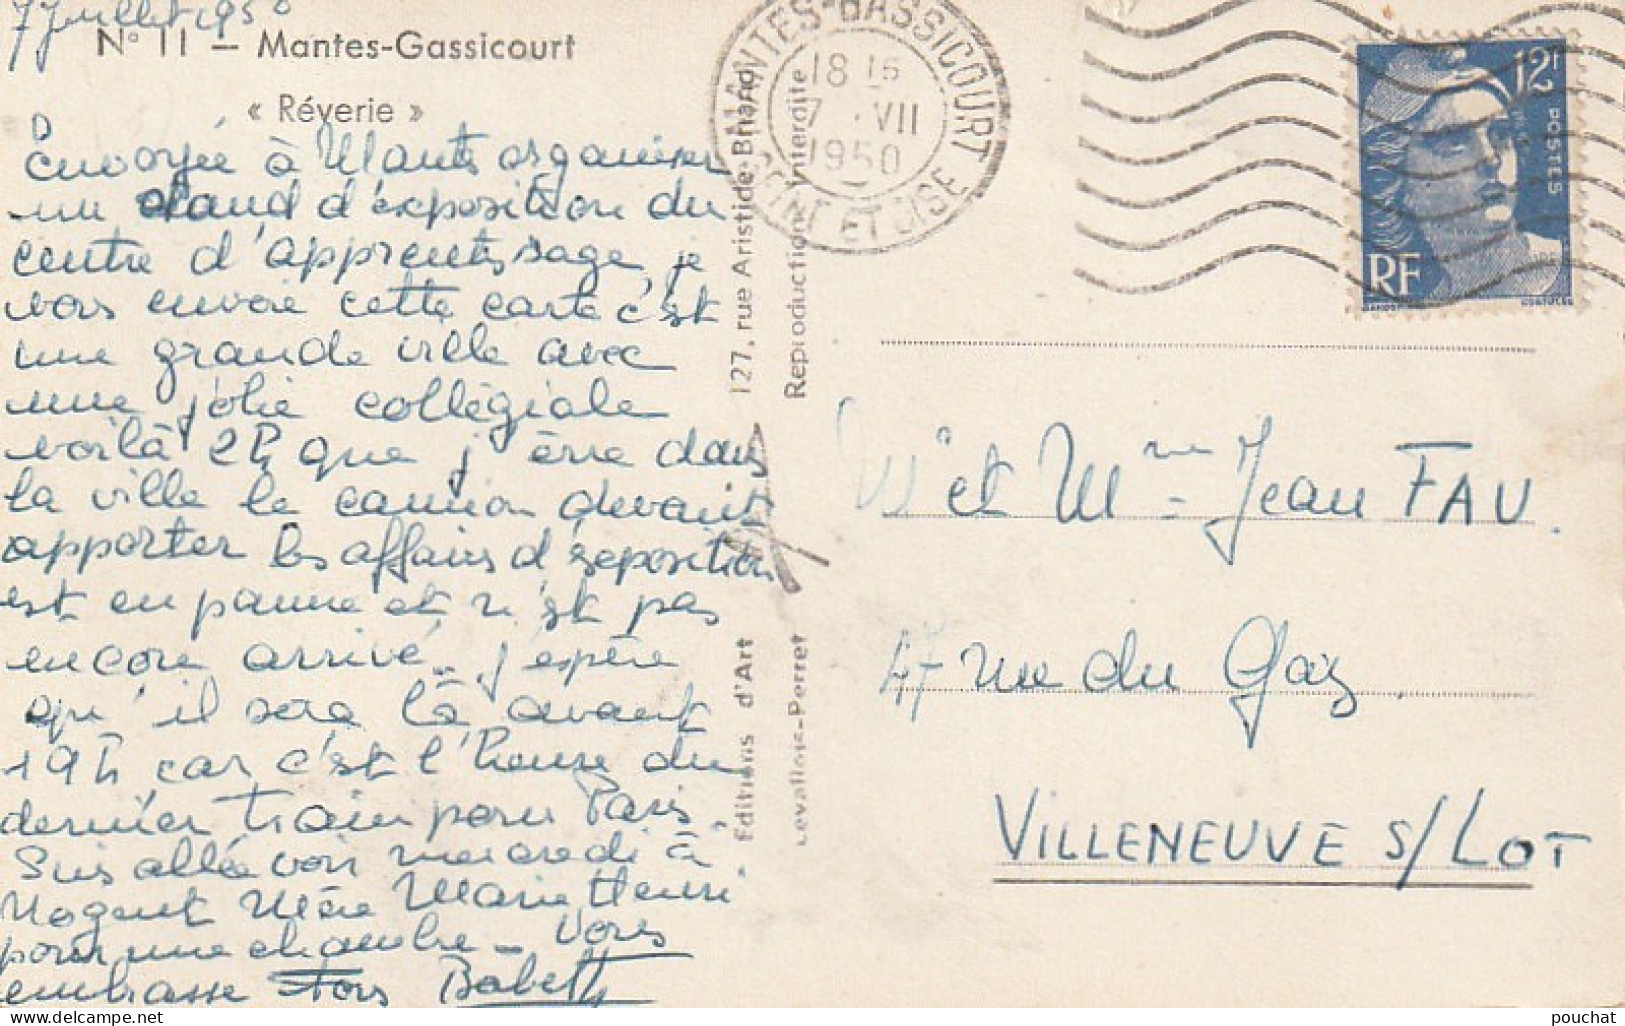 7 Juillet 1950
N° 11 — Mantes-Gassicourt
« Rêverie »
Envoyée à Mantes organiser
un stand d'exposition du
centre d'apprentissage, je
vous envoie cette carte c'est
une grande ville avec
une jolie collégiale
voilà 2h que j'erre dans
la ville le camion devant
apporter les affaires d'exposition
est en panne et n'est pas
encore arrivé. j'espère
qu'il sera là avant
19h car c'est l'heure du
dernier train pour Paris.
Suis allée voir mercredi à
Nogent Mère Marie Henri
pour une chambre – Vous
embrasse Tous Babeth
Editions d'Art
127, rue Aristide-Briand
Levallois-Perret
Reproduction interdite
MANTES-GASSICOURT
18 15
7 · VII
1950
SEINE ET OISE
12F
POSTES
RF
M et Mme Jean FAU.
47 rue du Gaz.
VILLENEUVE S/LOT
pouchat